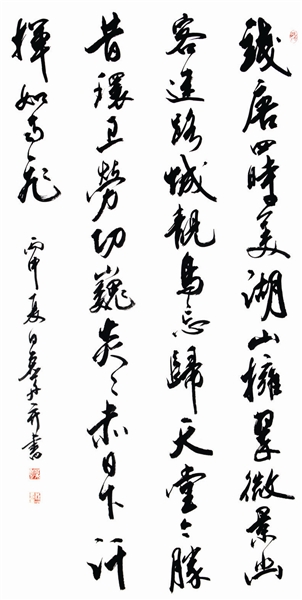 錢唐四時美湖山擁翠微景幽
客迷路城靚鳥忘歸天堂今勝
昔環卫勞功巍炎〻赤日下汗
揮如雨飛
丙申夏日書